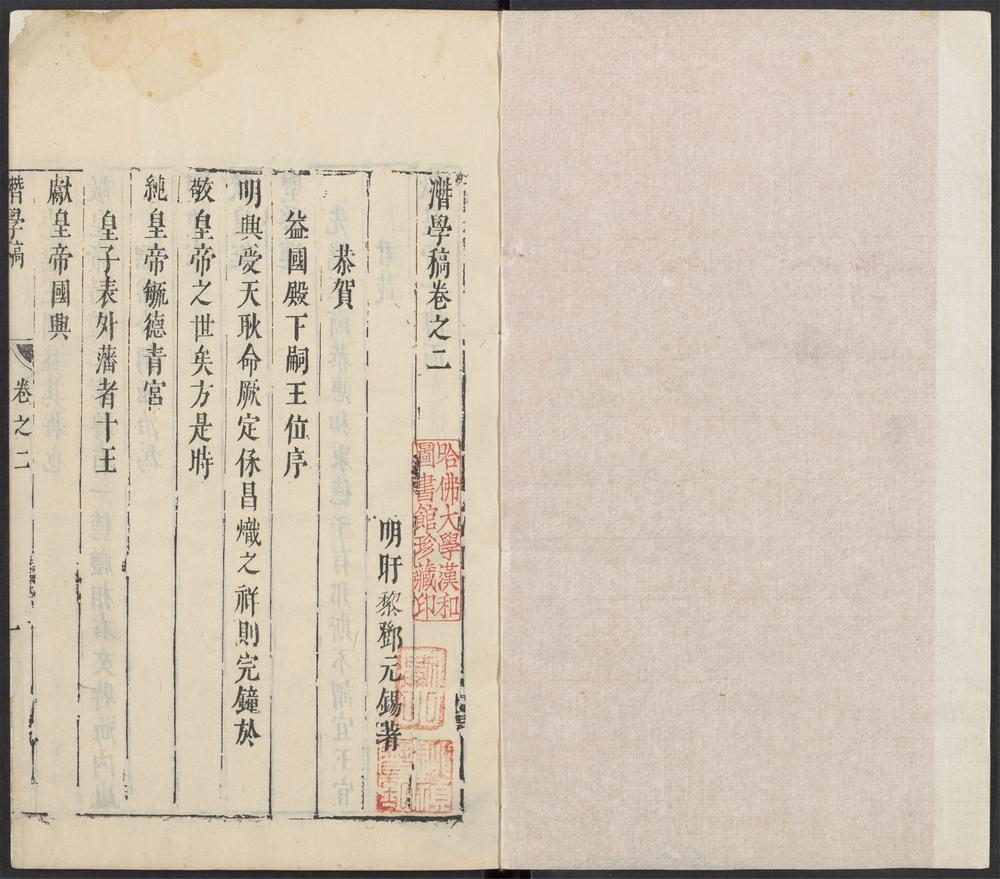 潛學稿卷之二
明盱黎鄧元錫著
恭賀
益國殿下嗣王位序
明興受天耿命厥定保昌熾之祥則完鐘於
敬皇帝之世矣方是時
純皇帝毓德青宮
皇子表外藩者十王
獻皇帝國興
潛學稿
卷之二
一
哈佛大學漢和
圖書館珍藏印